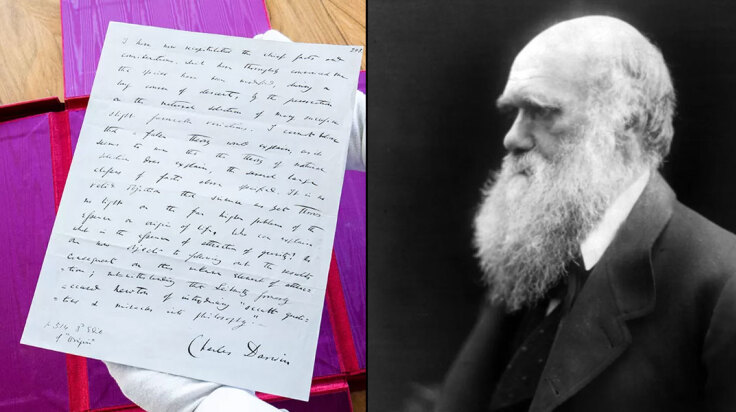 I have now recapitulated the chief facts and
considerations, which have thoroughly convinced me
that species have been modified, during a
long course of descent, by the preservation
or the natural selection of many successive
slight favourable variations. I cannot believe
that a false theory would explain, as it
seems to me that the theory of natural
selection does explain, the several large
classes of facts above specified. It is no
valid objection that science as yet throws
no light on the far higher problem of the
essence or origin of life. Who can explain
what is the essence of attraction of gravity? No
one now objects to following out the results
consequent on this unknown element of attrac
=tion; notwithstanding that Leibnitz formerly
accused Newton of introducing "occult quali-
=ties & miracles into philosophy".—
Charles Darwin
p 514 3d Edit.
"Origin"